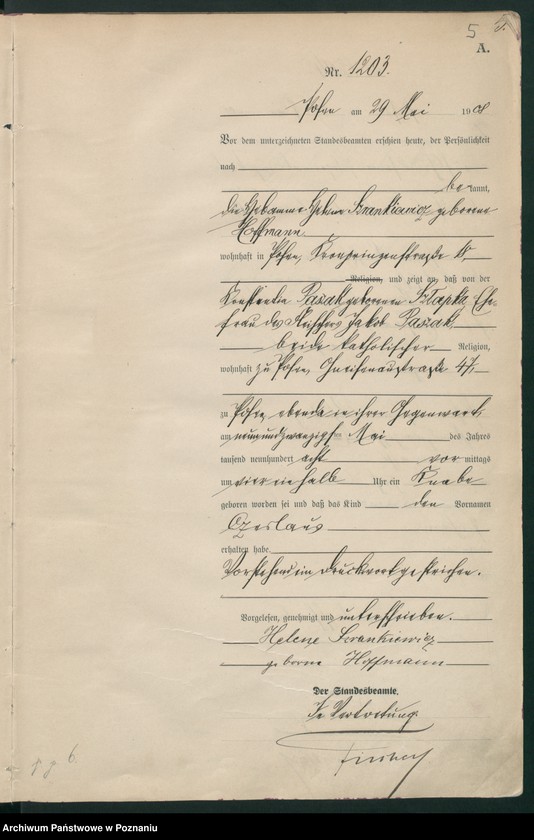 5 5.
A.
Nr. 1203.
Posen am 29 Mai 1908
Vor dem unterzeichneten Standesbeamten erschien heute, der Persönlichkeit
nach
bekannt,
die Hebamme Helene Scrankiewicz geborene
Hoffmann
wohnhaft in Posen, Kronprinzenstraße
Religion, und zeigte an, daß von der
Konstantia Paszak geborenen Szłapka, Ehe-
frau des Tischlers Jakob Paszak,
beide katholischer Religion,
wohnhaft zu Posen, Gneisenaustraße 47,
zu Posen, ebenda in ihrer Gegenwart
am neunundzwanzigsten Mai des Jahres
tausend neunhundert acht vormittags
um viereinhalb Uhr ein Knabe
geboren worden sei und daß das Kind den Vornamen
Czeslaus
erhalten habe.
Vorstehend im Druck gestrichen.
Vorgelesen, genehmigt und unterschrieben.
Helene Scrankiewicz
geborne Hoffmann
Der Standesbeamte.
In Vertretung.
6.
Archiwum Państwowe w Poznaniu